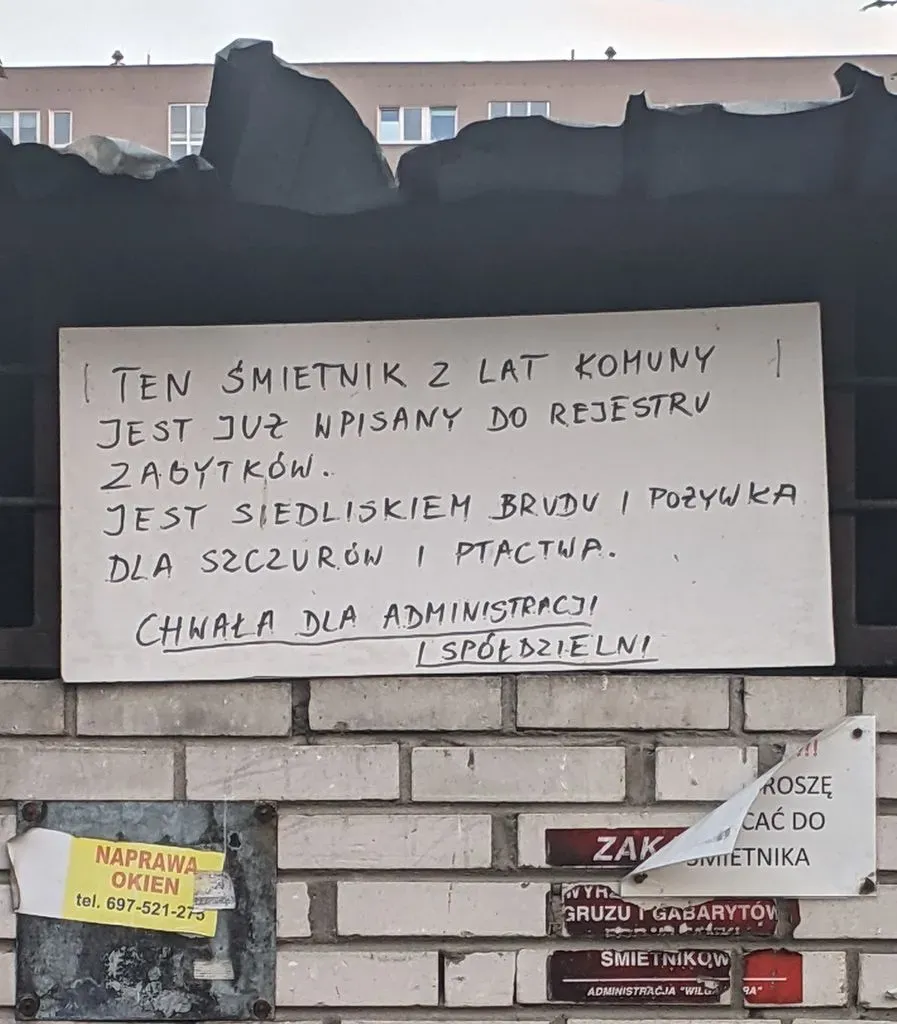 TEN ŚMIETNIK Z LAT KOMUNY
JEST JUŻ WPISANY DO REJESTRU
ZABYTKÓW.
JEST SIEDLISKIEM BRUDU I POŻYWKA
DLA SZCZURÓW I PTACTWA.
CHWAŁA DLA ADMINISTRACJI
I SPÓŁDZIELNI
NAPRAWA
OKIEN
tel. 697-521-275
!!!
ROSZĘ
CAĆ DO
ŚMIETNIKA
ZAK
WYR
GRUZU I GABARYTÓW
ŚMIETNIKÓW
ADMINISTRACJA "WILGA